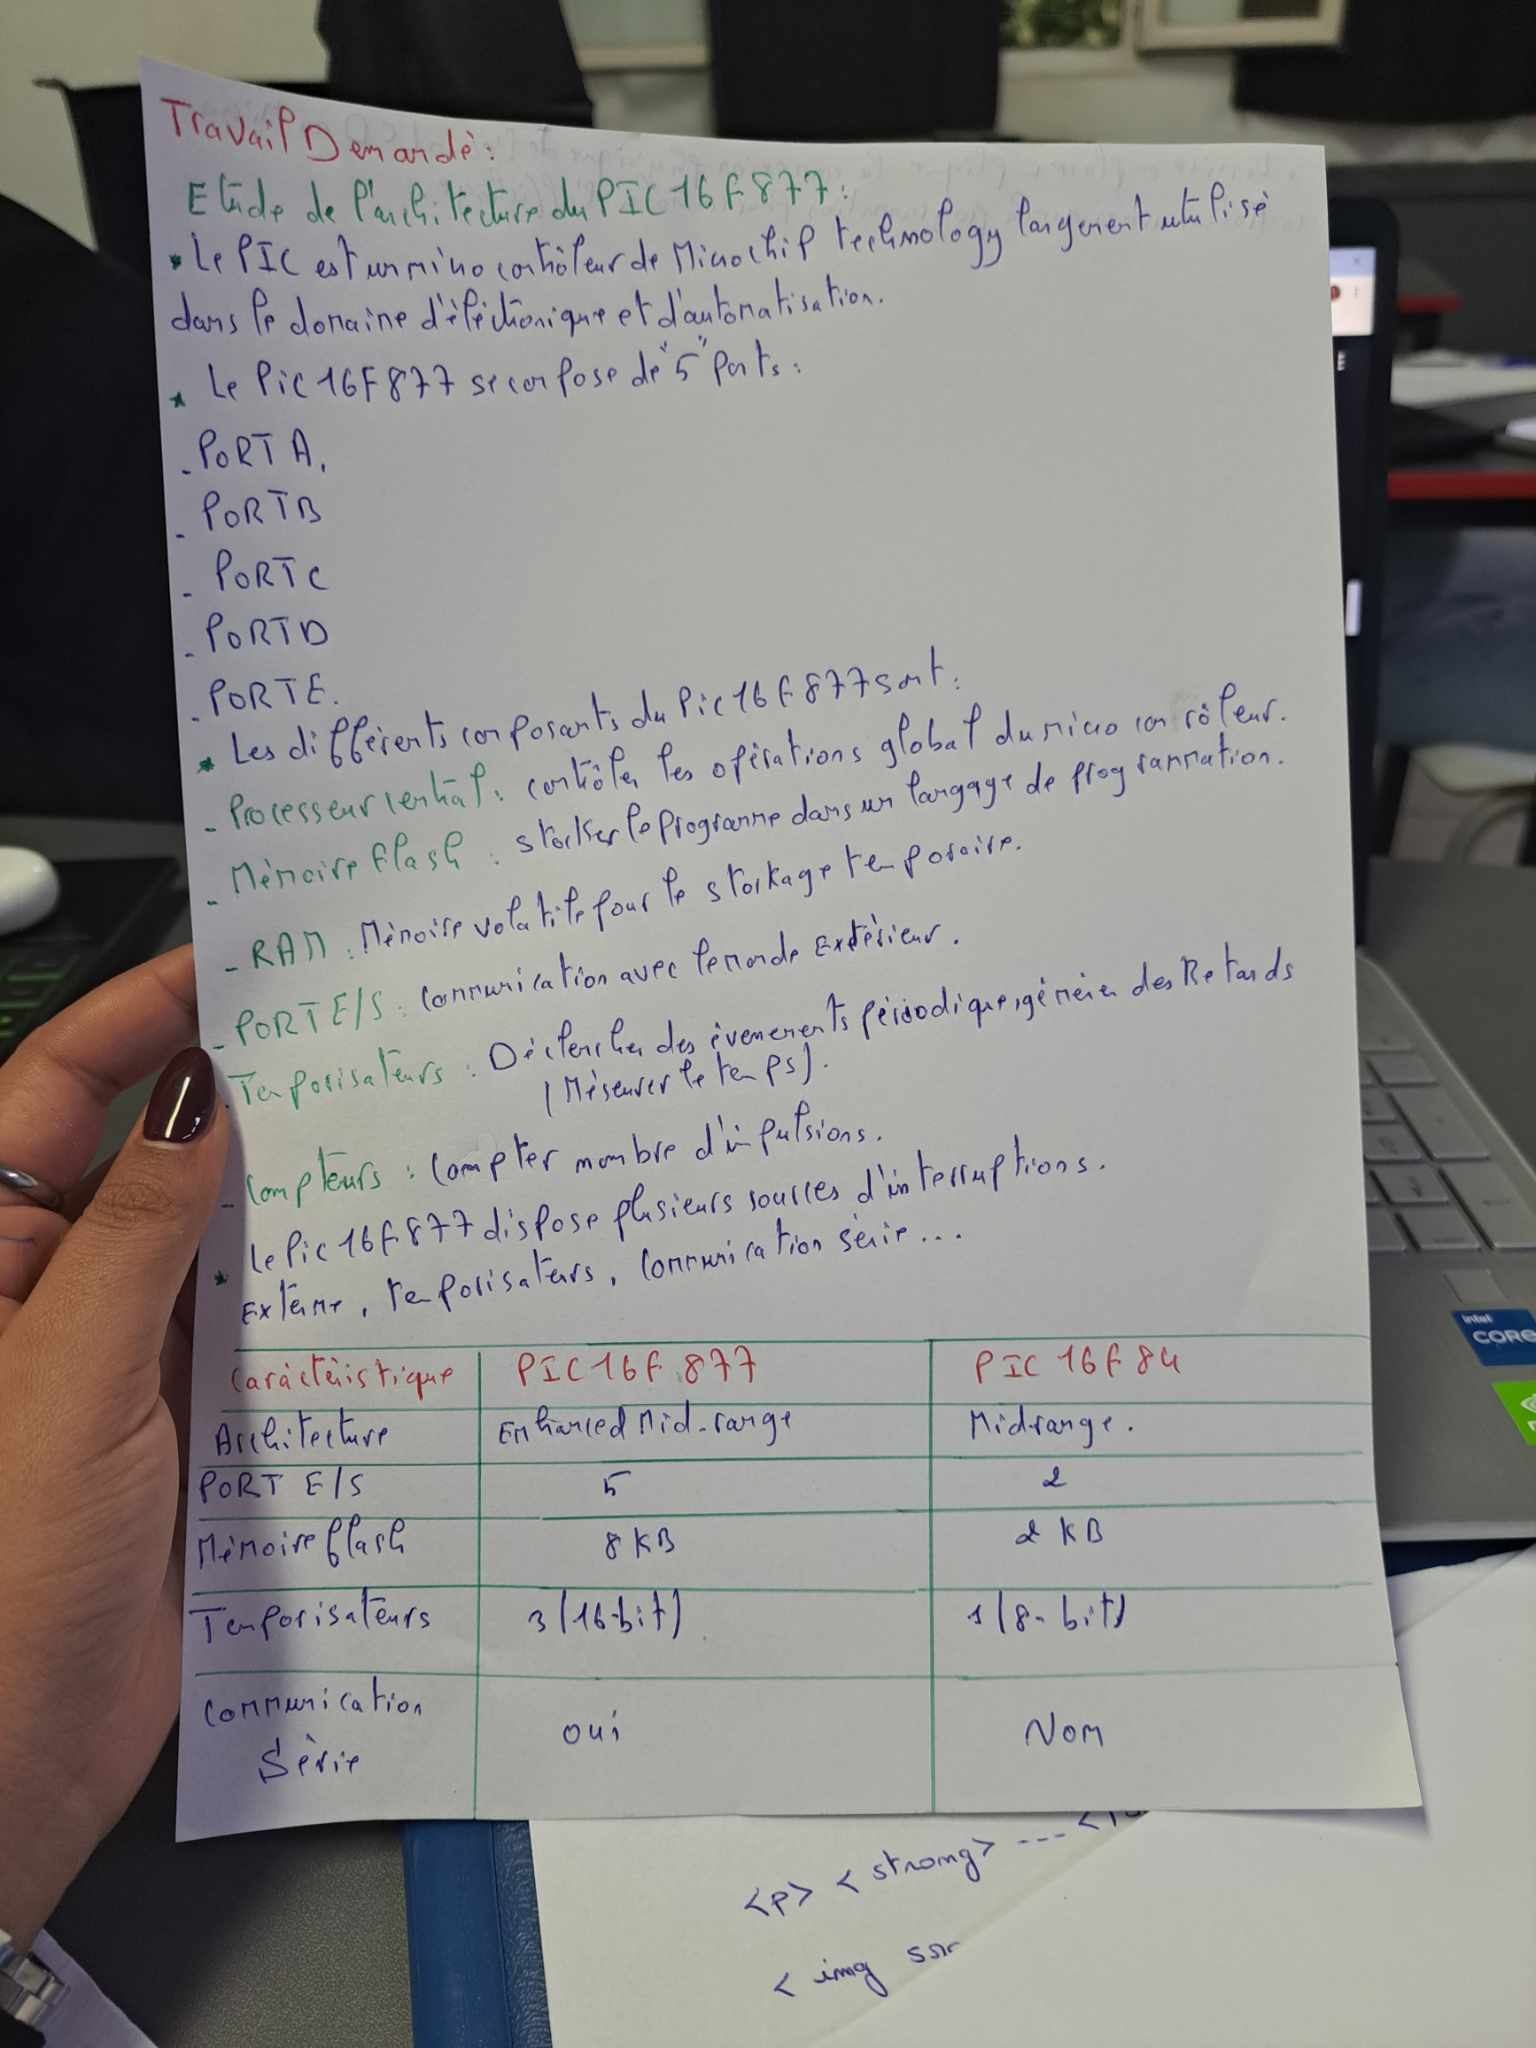 Travail Demandé :
Etude de l'architecture du PIC16F877 :
* Le PIC est un micro contrôleur de Microchip technology largement utulisé
dans le domaine d'éléctronique et d'automatisation.
* Le Pic 16F877 se compose de "5" Ports :
- PORT A,
- PORTB
- PORTC
- PORTD
- PORTE.
* Les différents composants du Pic16F877 sont :
- Processeur Central : contrôler les opérations global du micro con rôleur.
- Mémoire flash : stocker le programme dans un langage de programmation.
- RAM : Mémoire volatile pour le stockage temporaire.
- PORT E/S : Communication avec le monde Extérieur.
- Temporisateurs : Déclencher des évenements périodique, générer des Retards
(Mésurer le temps).
- Compteurs : Compter nombre d'impulsions.
* Le Pic 16F877 dispose plusieurs sources d'interruptions.
Externe, temporisateurs, Communication série...
Caractéristique PIC16F877 PIC 16F84
Architecture Enhanced Mid-range Midrange.
PORT E/S 5 2
Mémoire flash 8 KB 2 KB
Temporisateurs 3 (16-bit) 1 (8-bit)
Communication
Série Oui Non
<p> <strong> --- <
< img src
intel
CORE